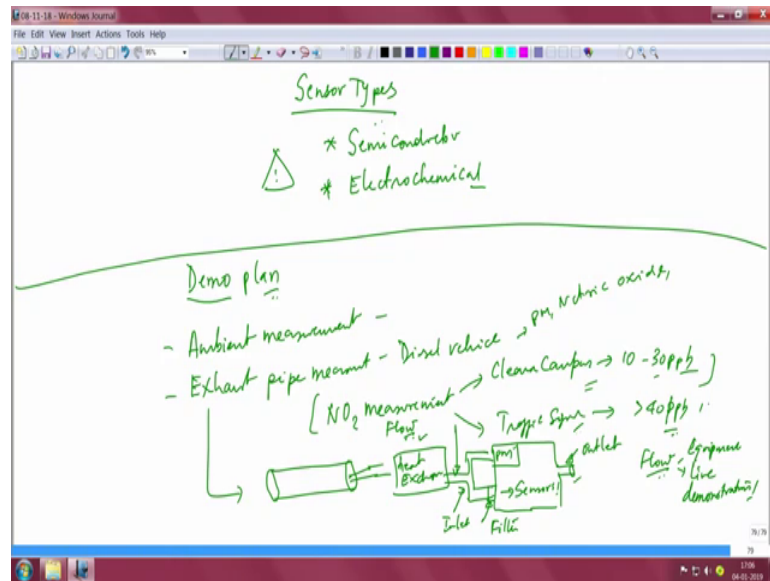 08-11-18 - Windows Journal
File Edit View Insert Actions Tools Help
90%
Sensor Types
* Semiconductor
* Electrochemical
!
Demo plan
- Ambient measurement -
- Exhaust pipe - Diesel vehicle → PM, Nitric oxide,
[NO2 measurement → Clean Campus → 10 - 30 ppb]
→ Traffic → >40 ppb
Flow
Heat
PM
→ Sensors!!
outlet
Inlet
Filter
Flow
live
demonstration!
79/79
79
17:06
04-01-2019